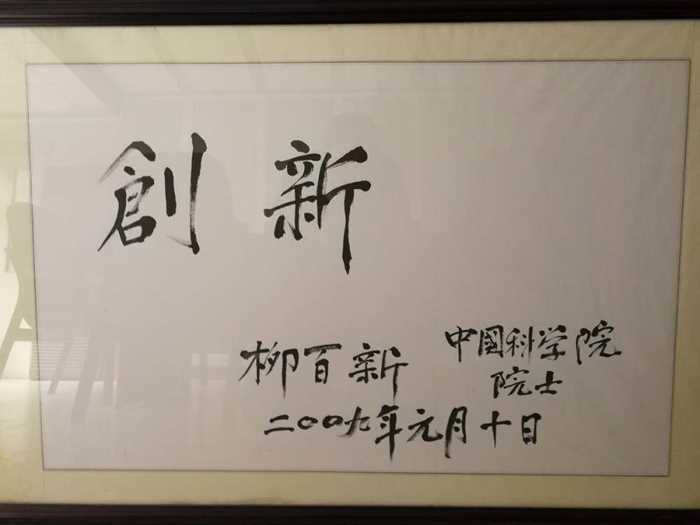 創新
柳百新 中国科学院
院士
二〇〇九年元月十日